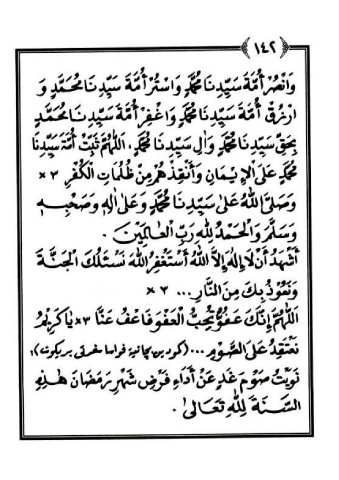 ١٤٢
وَانْصُرْ أُمَّةَ سَيِّدِنَا مُحَمَّدٍ وَاسْتُرْ أُمَّةَ سَيِّدِنَا مُحَمَّدٍ وَ
ارْزُقْ أُمَّةَ سَيِّدِنَا مُحَمَّدٍ وَاغْفِرْ أُمَّةَ سَيِّدِنَا مُحَمَّدٍ
بِحَقِّ سَيِّدِنَا مُحَمَّدٍ وَآلِ سَيِّدِنَا مُحَمَّدٍ، اَللّٰهُمَّ ثَبِّتْ أُمَّةَ سَيِّدِنَا
مُحَمَّدٍ عَلَى الْإِيْمَانِ وَأَنْقِذْهُمْ مِنْ ظُلُمَاتِ الْكُفْرِ ×٣
وَصَلَّى اللهُ عَلَى سَيِّدِنَا مُحَمَّدٍ وَعَلَى اٰلِهِ وَصَحْبِهِ
وَسَلَّمَ وَالْحَمْدُ لِلّٰهِ رَبِّ الْعَالَمِيْنَ.
أَشْهَدُ أَنْ لَا إِلٰهَ إِلَّا اللهُ أَسْتَغْفِرُ اللهَ نَسْئَلُكَ الْجَنَّةَ
وَنَعُوْذُ بِكَ مِنَ النَّارِ... ×٣
اَللّٰهُمَّ إِنَّكَ عَفُوٌّ تُحِبُّ الْعَفْوَ فَاعْفُ عَنَّا ×٣ يَا كَرِيْمُ
نَعْتَقِدُ عَلَى الصَّوْمِ...
نَوَيْتُ صَوْمَ غَدٍ عَنْ أَدَاءِ فَرْضِ شَهْرِ رَمَضَانَ هٰذِهِ
السَّنَةِ لِلّٰهِ تَعَالَى.